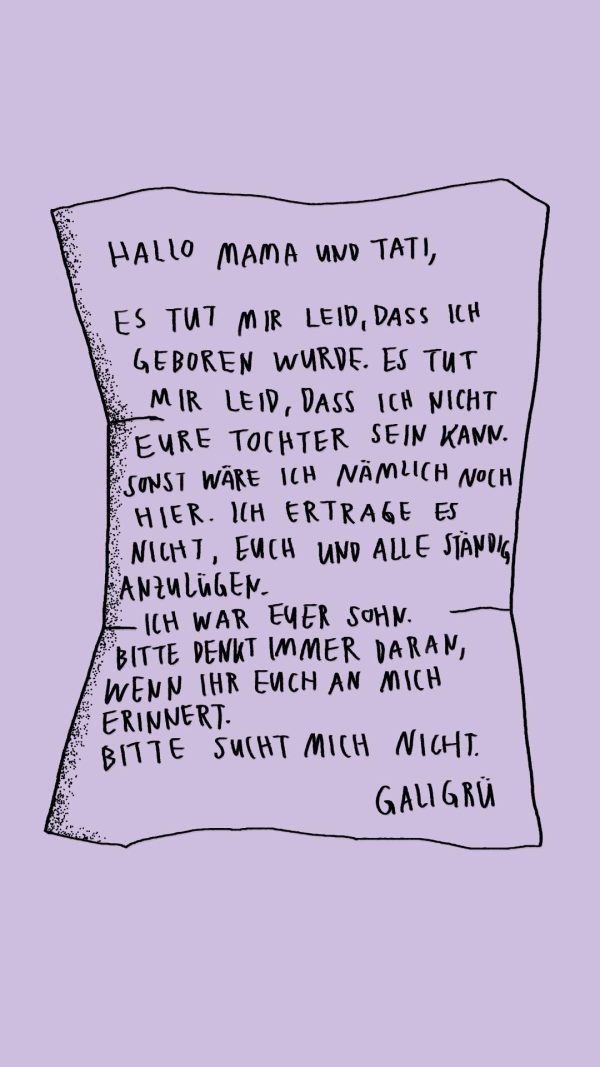 HALLO MAMA UND TATI,
ES TUT MIR LEID, DASS ICH
GEBOREN WURDE. ES TUT
MIR LEID, DASS ICH NICHT
EURE TOCHTER SEIN KANN.
SONST WÄRE ICH NÄMLICH NOCH
HIER. ICH ERTRAGE ES
NICHT, EUCH UND ALLE STÄNDIG
ANZULÜGEN.
ICH WAR EUER SOHN.
BITTE DENKT IMMER DARAN,
WENN IHR EUCH AN MICH
ERINNERT.
BITTE SUCHT MICH NICHT.
GALIGRÜ